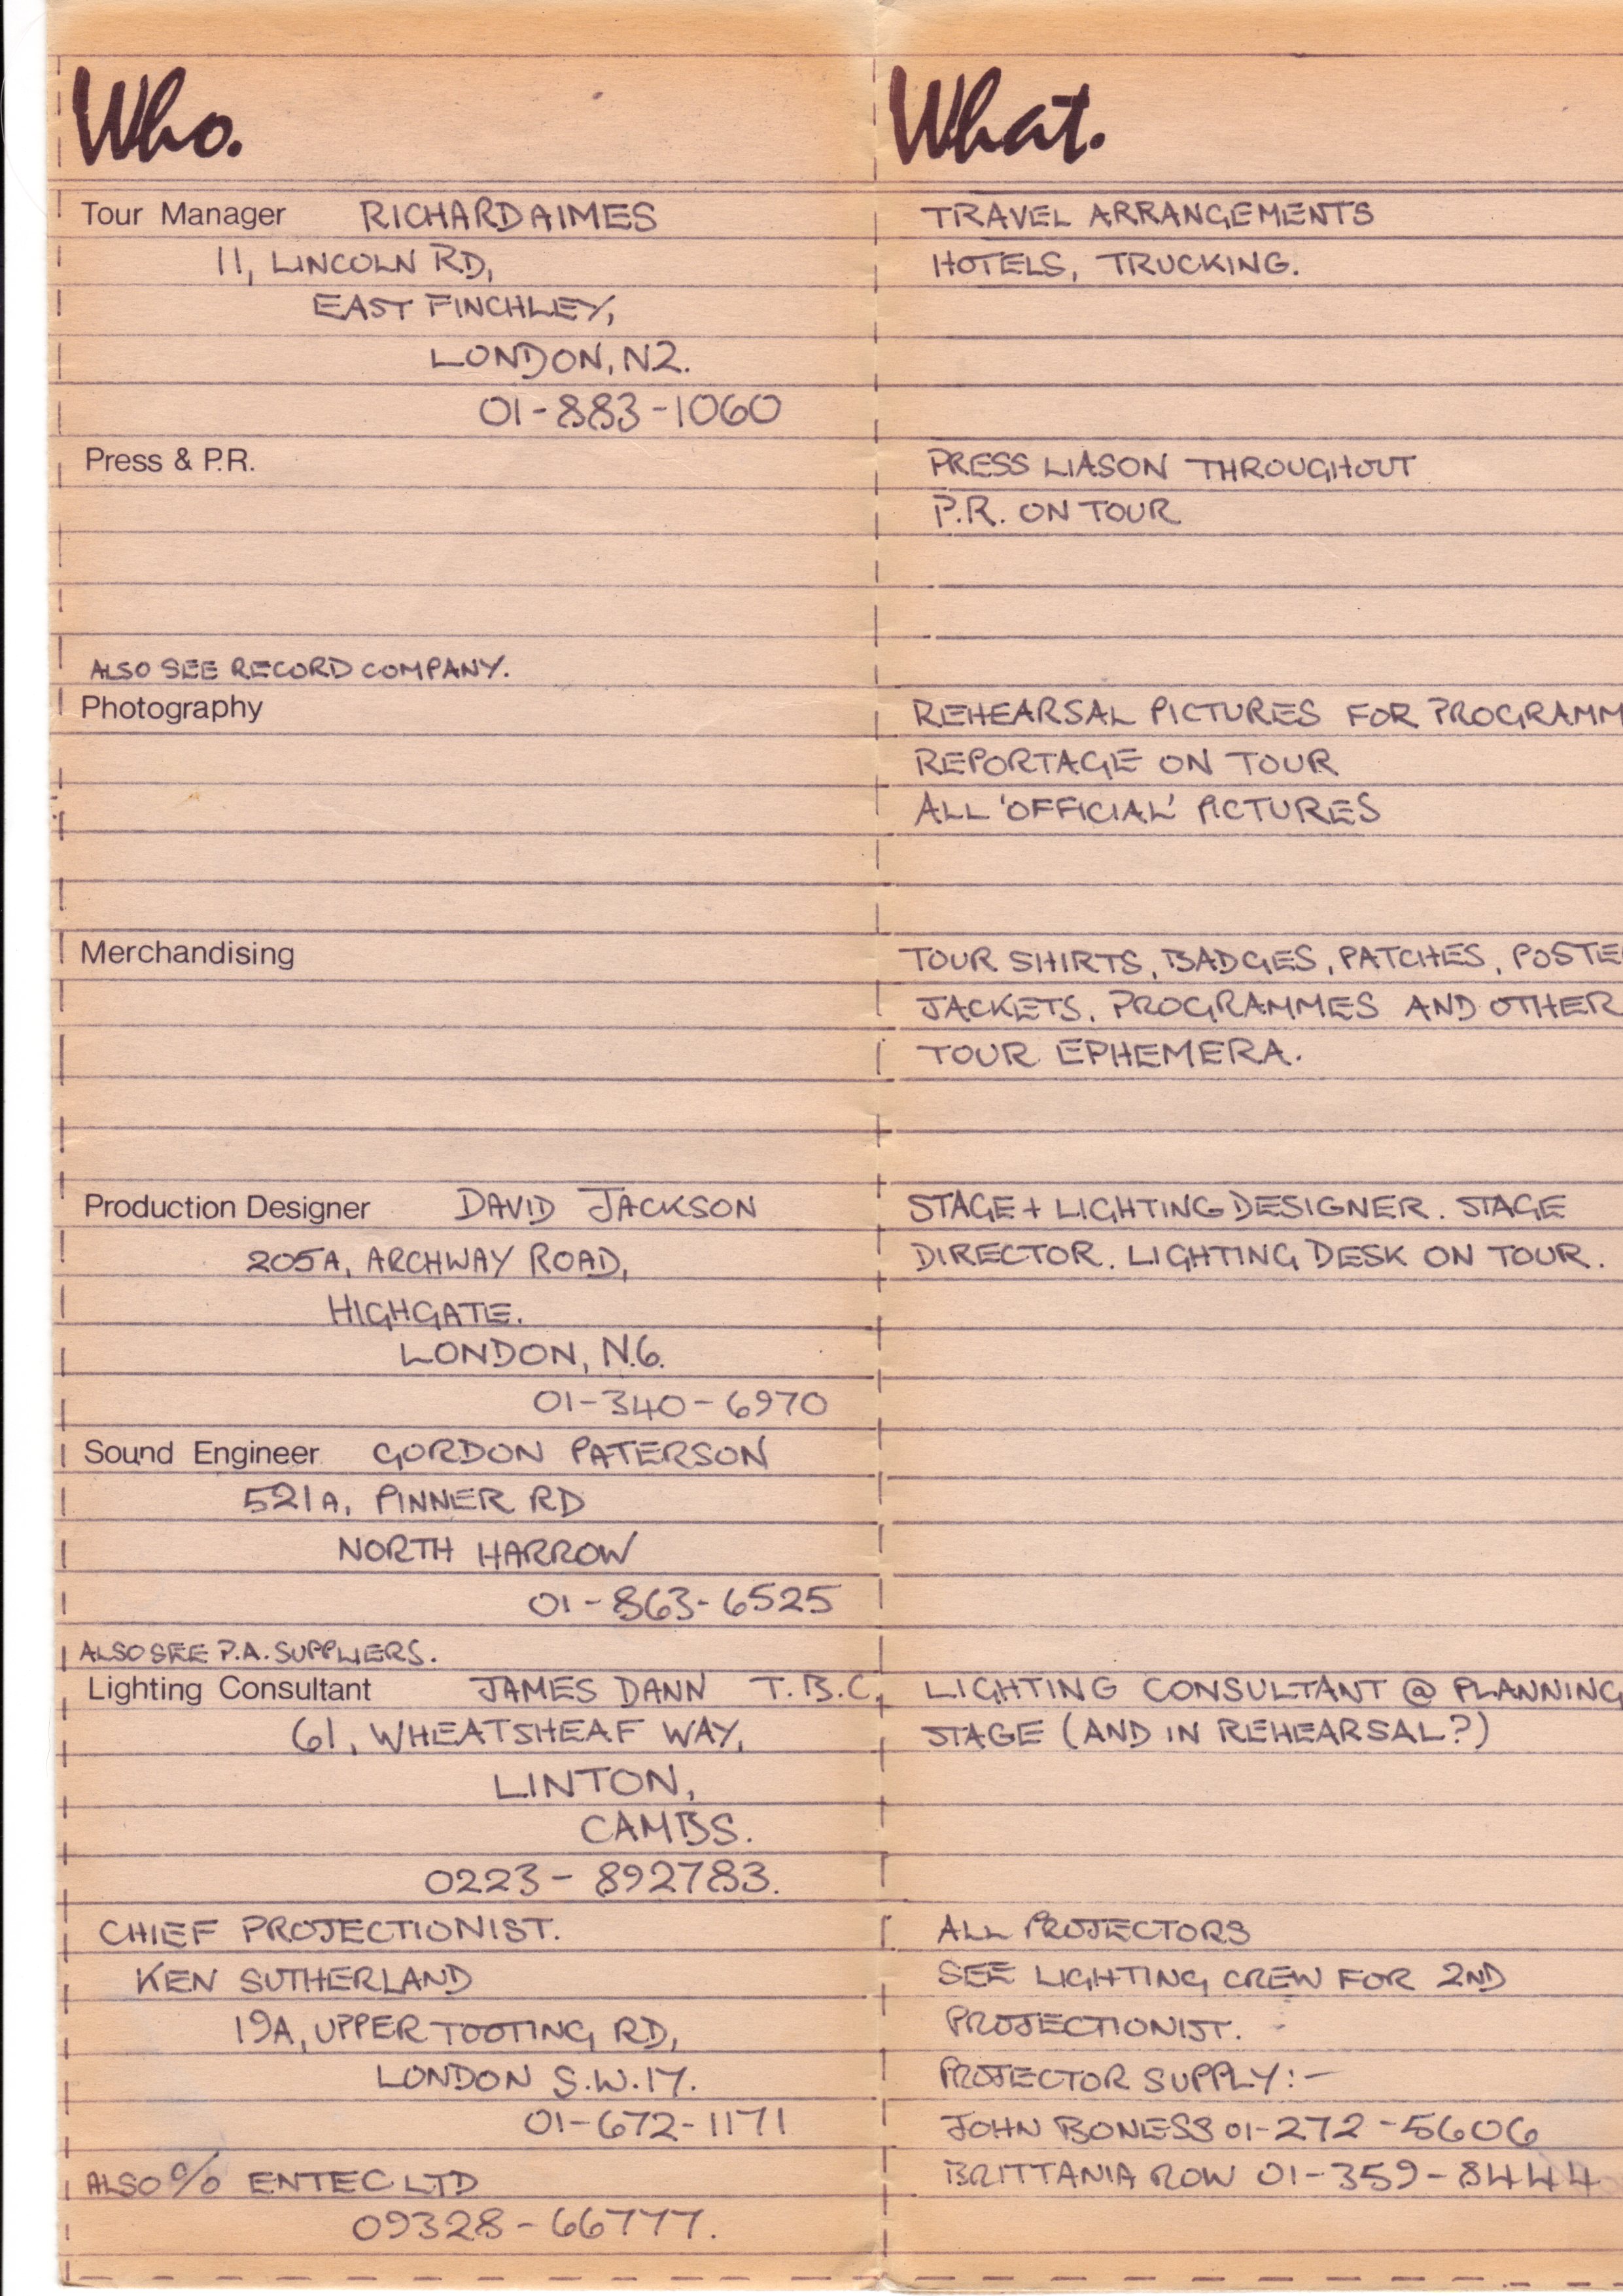 Who.
What.
Tour Manager RICHARD AIMES
TRAVEL ARRANGEMENTS
11, LINCOLN RD,
HOTELS, TRUCKING.
EAST FINCHLEY,
LONDON, N2.
01-883-1060
Press & P.R.
PRESS LIASON THROUGHOUT
P.R. ON TOUR
ALSO SEE RECORD COMPANY.
Photography
REHEARSAL PICTURES FOR PROGRAMM
REPORTAGE ON TOUR
ALL 'OFFICIAL' PICTURES
Merchandising
TOUR SHIRTS, BADGES, PATCHES, POSTE
JACKETS, PROGRAMMES AND OTHER
TOUR EPHEMERA.
Production Designer DAVID JACKSON
STAGE + LIGHTING DESIGNER. STAGE
205A, ARCHWAY ROAD,
DIRECTOR. LIGHTING DESK ON TOUR.
HIGHGATE.
LONDON, N.6.
01-340-6970
Sound Engineer GORDON PATERSON
521A, PINNER RD
NORTH HARROW
01-863-6525
ALSO SEE P.A. SUPPLIERS.
Lighting Consultant JAMES DANN T.B.C.
LIGHTING CONSULTANT @ PLANNING
61, WHEATSHEAF WAY,
STAGE (AND IN REHEARSAL?)
LINTON,
CAMBS.
0223-892783.
CHIEF PROJECTIONIST.
ALL PROJECTORS
KEN SUTHERLAND
SEE LIGHTING CREW FOR 2ND
19A, UPPER TOOTING RD,
PROJECTIONIST.
LONDON S.W.17.
PROJECTOR SUPPLY:-
01-672-1171
JOHN BONESS 01-272-5606
ALSO c/o ENTEC LTD
BRITTANIA ROW 01-359-8444
09328-66777.